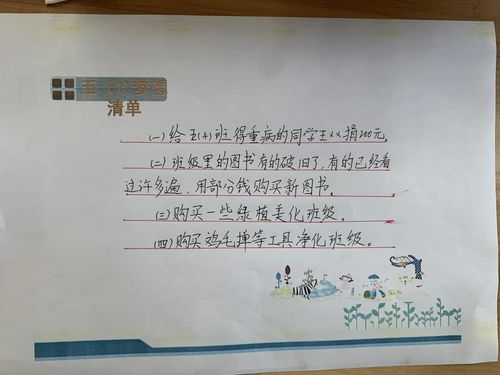 五（1）梦想
清单
(一)给五(4)班得重病的同学王××捐200元。
(二)班级里的图书有的破旧了,有的已经看
过许多遍,用部分钱购买新图书。
(三)购买一些绿植美化班级。
(四)购买鸡毛掸等工具净化班级。